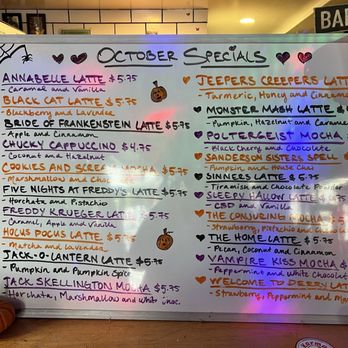 BAR
OCTOBER SPECIALS
ANNABELLE LATTE $5.75
- Caramel and Vanilla
BLACK CAT LATTE $5.75
- Blackberry and Lavender
BRIDE OF FRANKENSTEIN LATTE $5.75
- Apple and Cinnamon
CHUCKY CAPPUCCINO $4.75
- Coconut and Hazelnut
COOKIES AND SCREAM MOCHA $5.75
- Marshmallow and Choc
FIVE NIGHTS AT FREDDY'S LATTE $5.75
- Horchata and Pistachio
FREDDY KRUEGER LATTE $5.75
- Caramel, Apple and Vanilla
HOCUS POCUS LATTE $5.75
- Matcha and Lavender
JACK-O-LANTERN LATTE $5.75
- Pumpkin and Pumpkin Spice
JACK SKELLINGTON MOCHA $5.75
- Horchata, Marshmallow and White Choc.
JEEPERS CREEPERS LATTE
- Turmeric, Honey and Cinnamon
MONSTER MASH LATTE $
- Pumpkin, Hazelnut and Caramel
POLTERGEIST MOCHA
- Black Cherry and Chocolate
SANDERSON SISTERS SPELL
- Pumpkin and Chai
SINNERS LATTE $5.75
- Tiramisu and Chocolate Powder
SLEEPY HALLOW LATTE $
- CBD and Vanilla
THE CONJURING MOCHA $
- Strawberry, Pistachio and Choc
THE HOME LATTE $5.75
- Pecan, Coconut and Cinnamon
VAMPIRE KISS MOCHA $
- Peppermint and White Chocolate
WELCOME TO DERRY LATTE
- Strawberry, Peppermint and